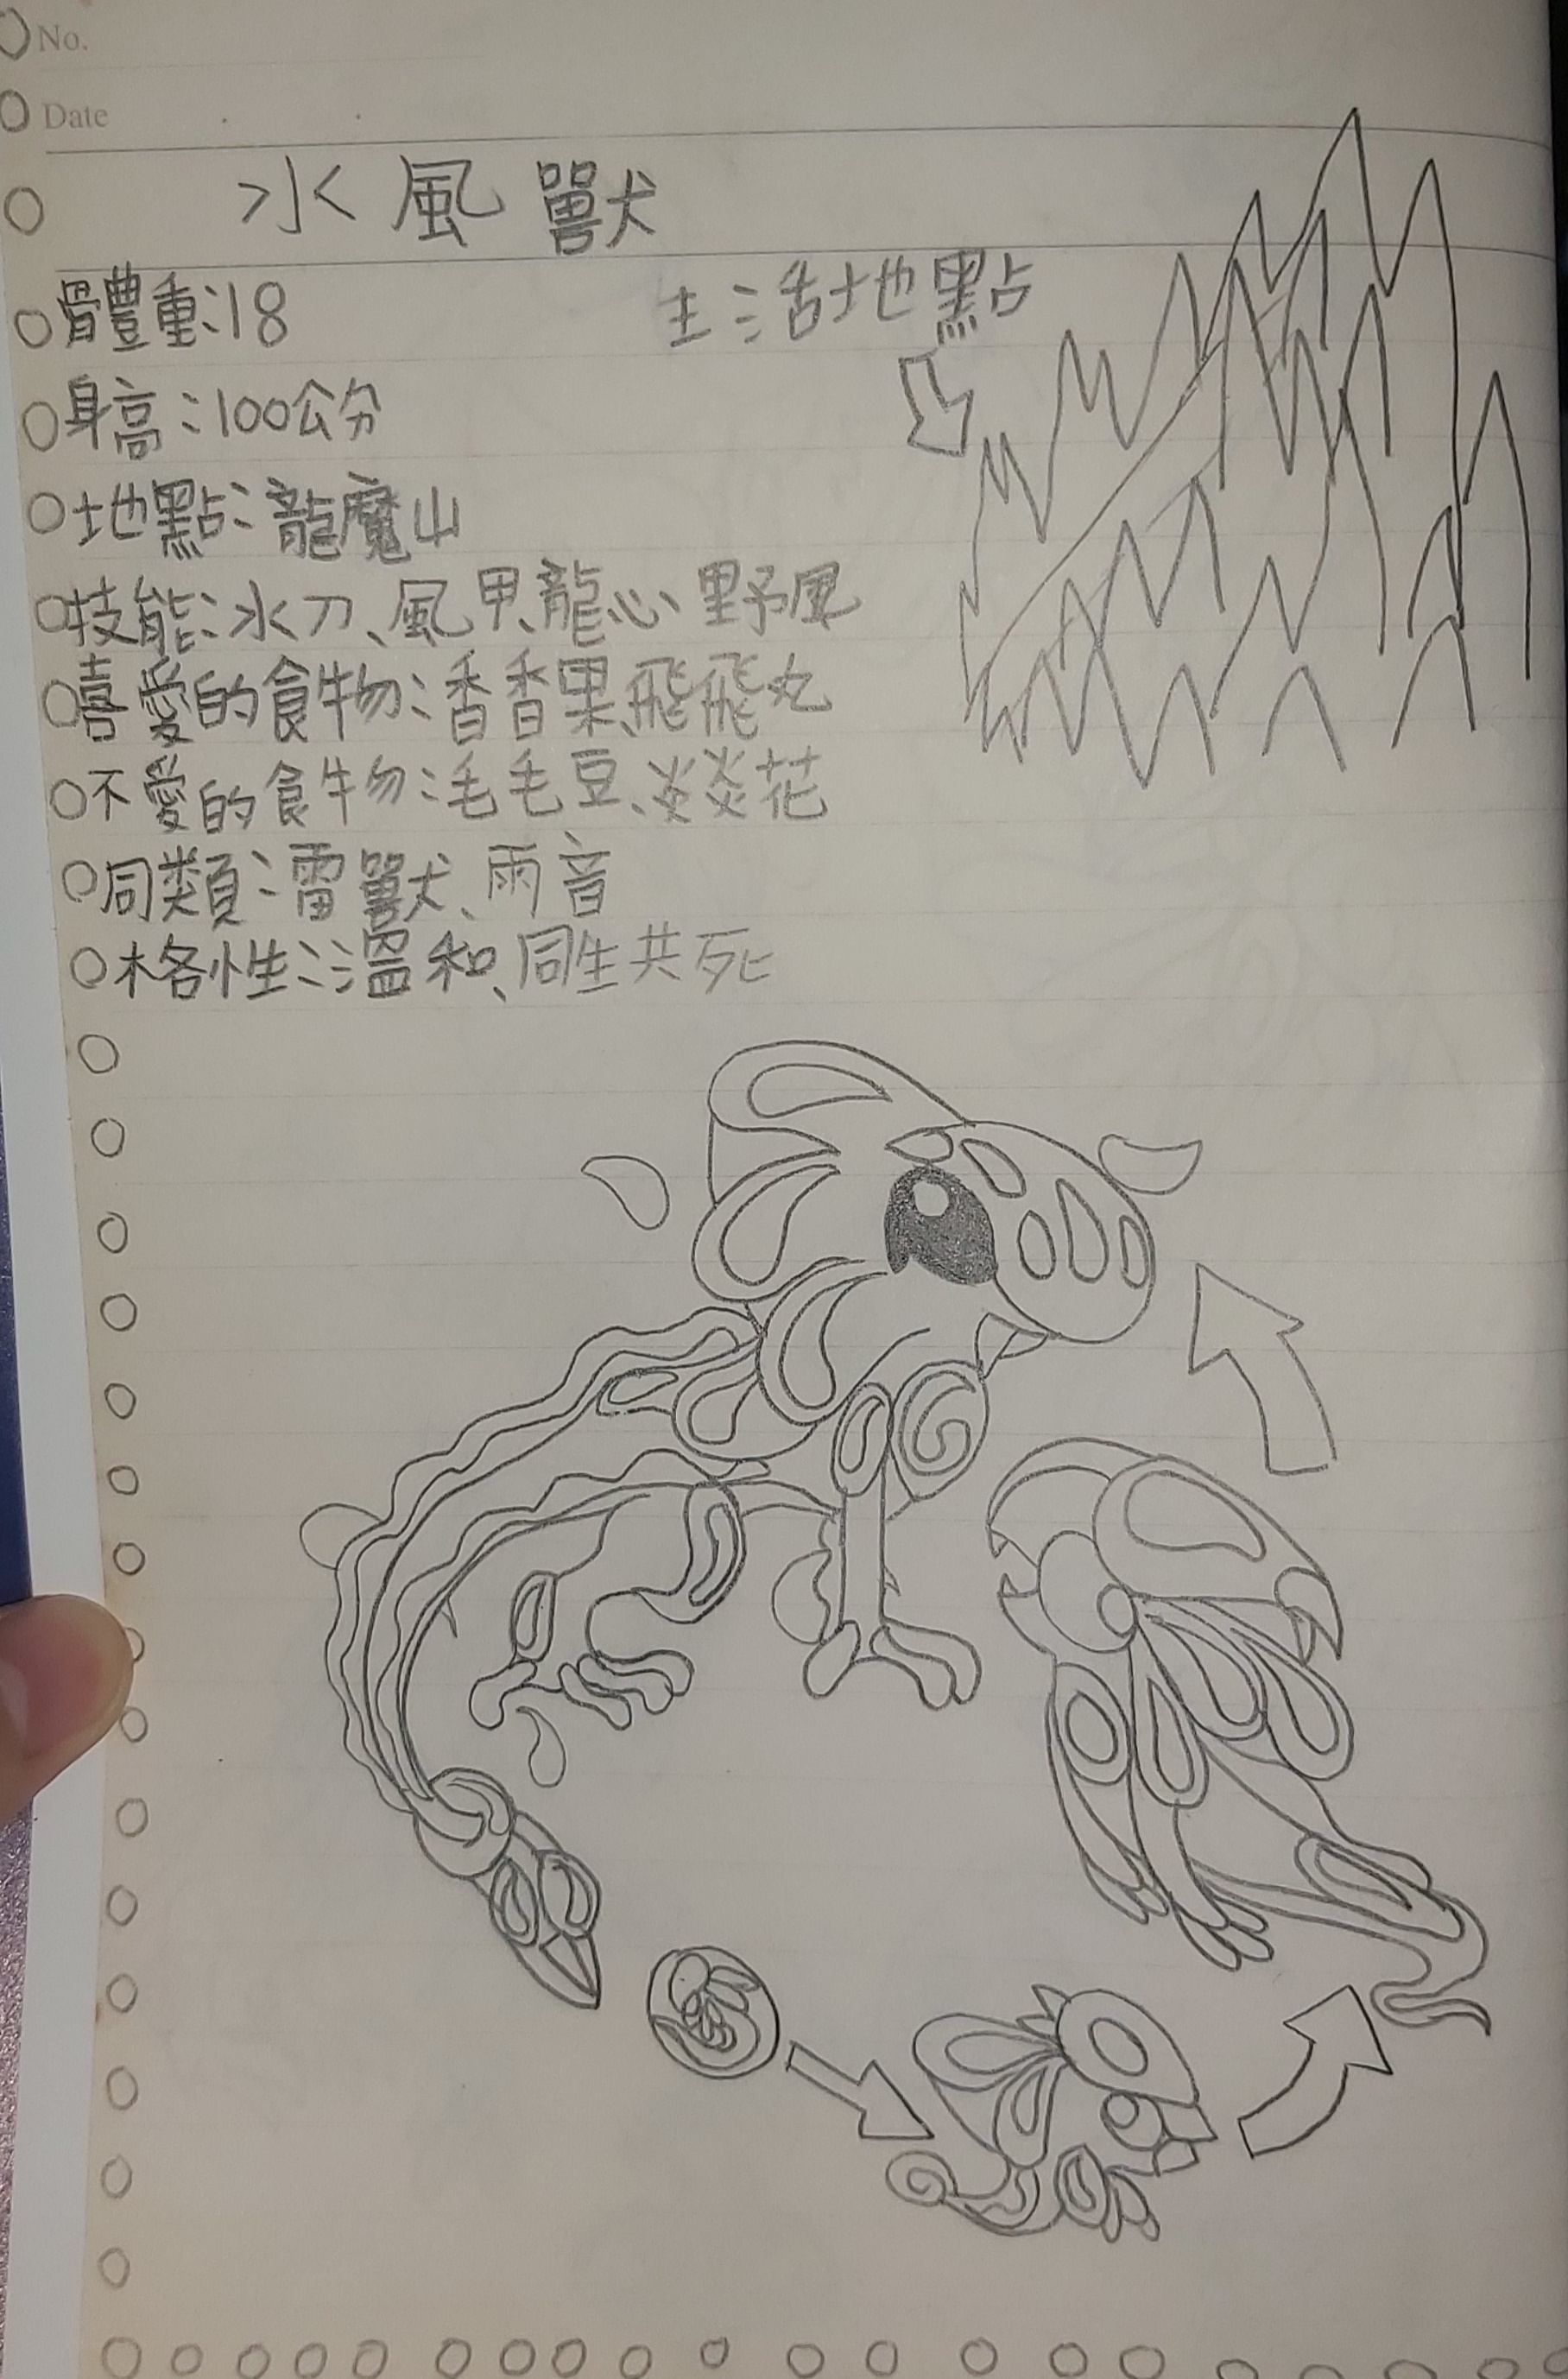 No.
Date
水風獸
體重:18
生活地點
身高:100公分
地點:龍魔山
技能:水刀、風甲、龍心、野風
喜愛的食物:香香果、飛飛丸
不愛的食物:毛毛豆、炎炎花
同類:雷獸、雨音
格性:溫和、同生共死